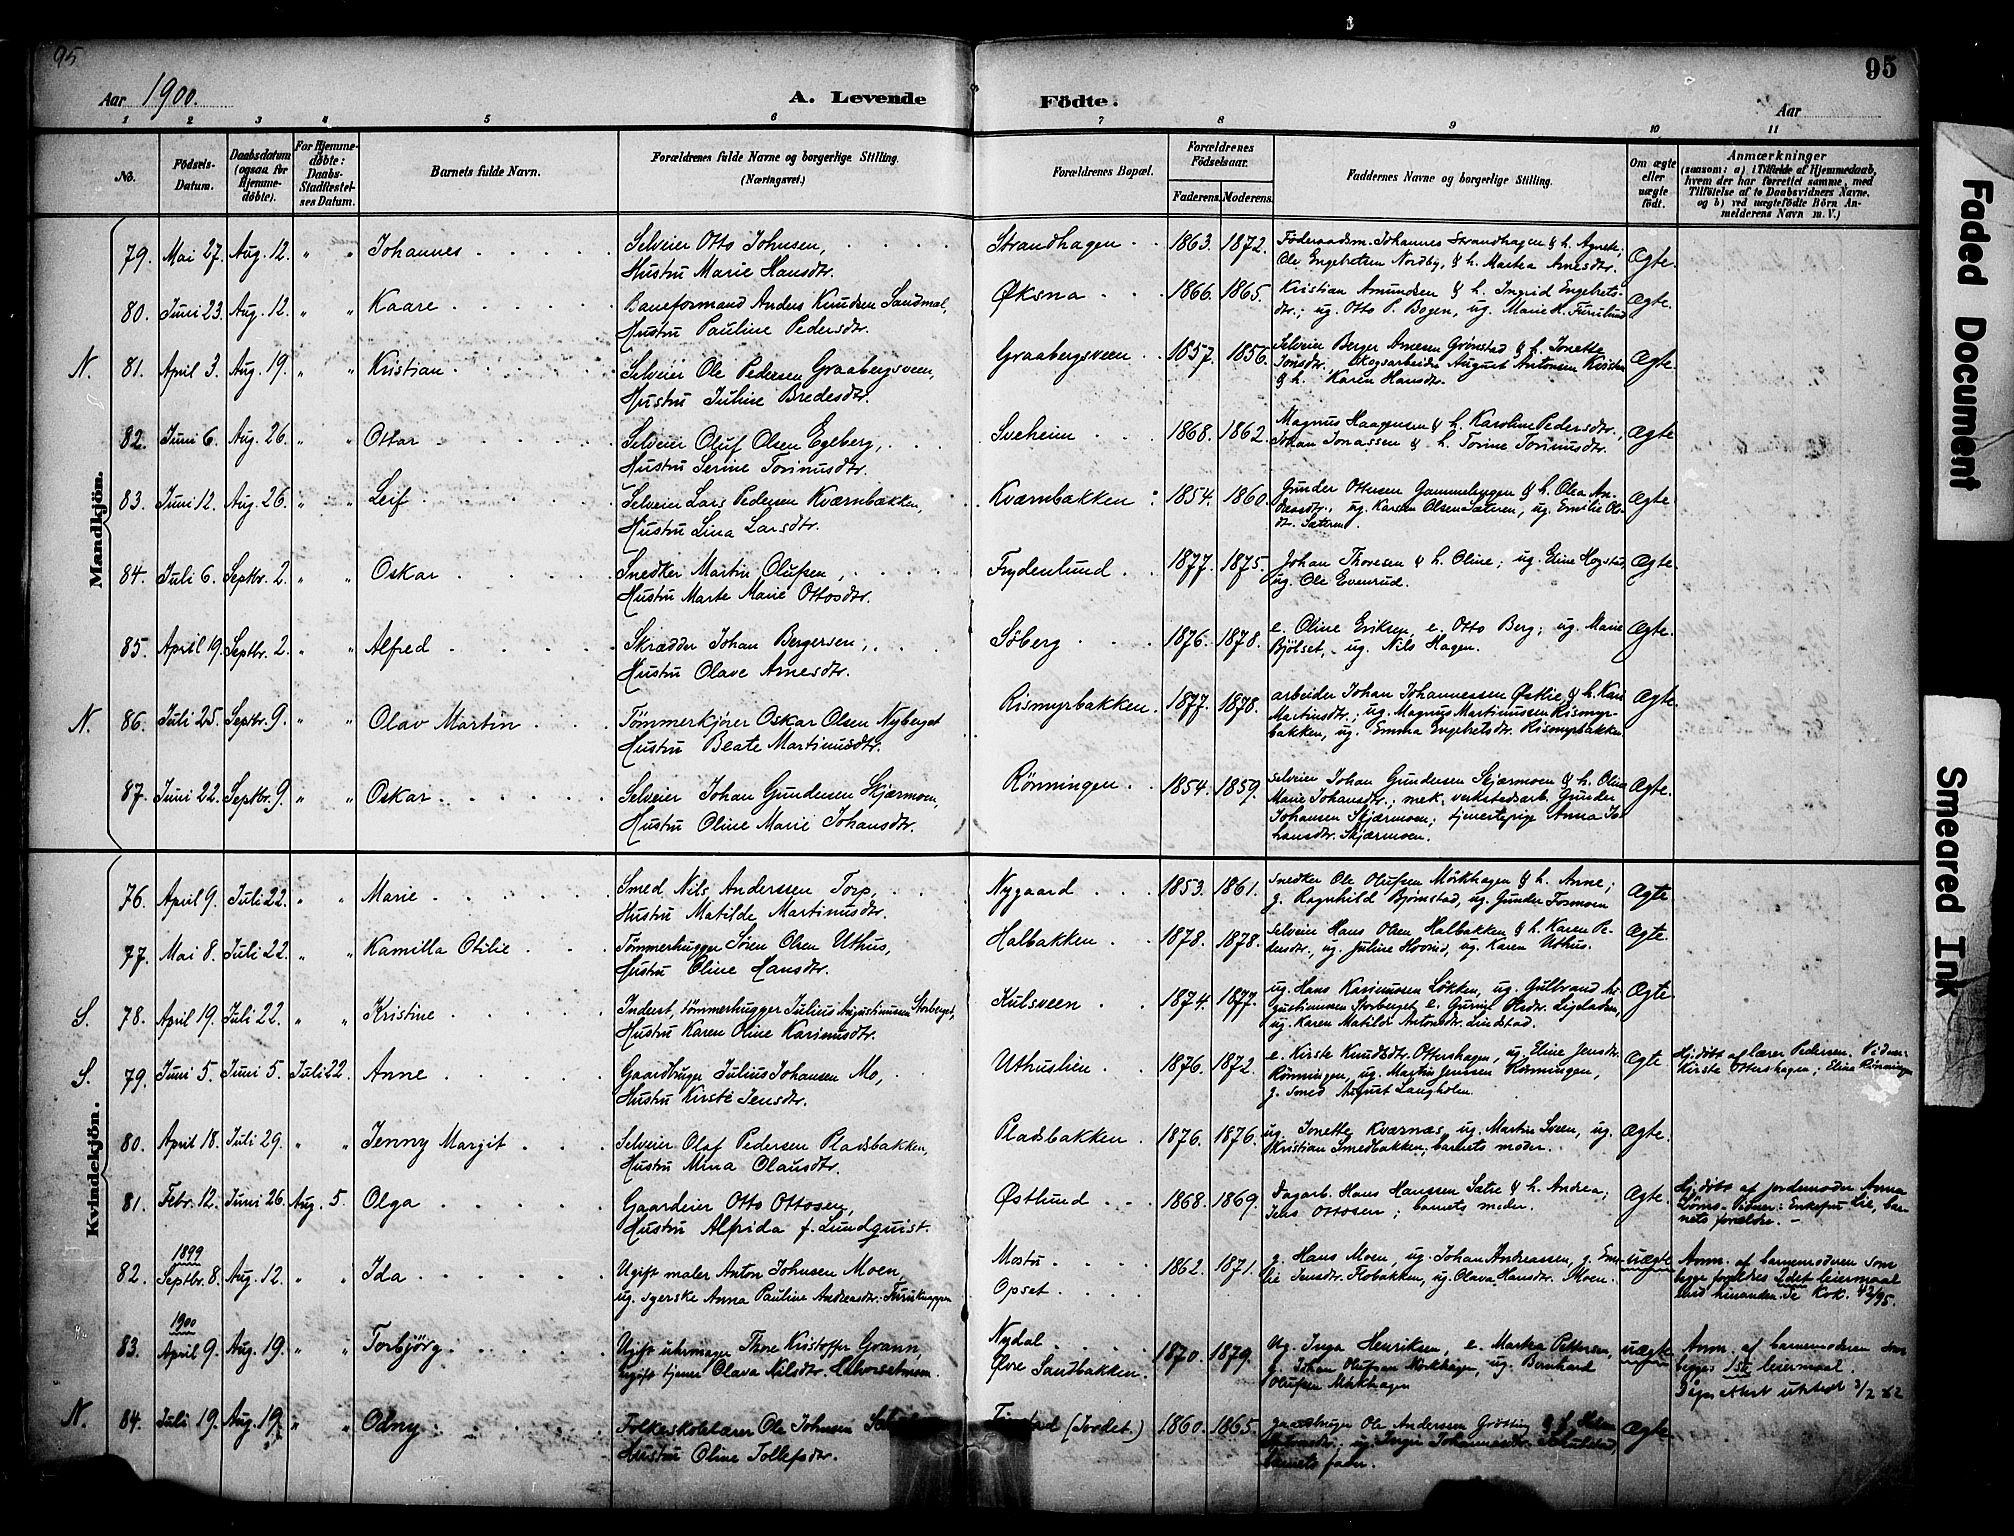 95
95
Aar 1900.
A. Levende Födte.
Aar
1 2 3 4 5 6 7 8 9 10 11
No.
Födsels-
Datum.
Daabsdatum
(ogsaa for
Hjemme-
döbte).
For Hjemme-
döbte:
Daabs-
Stadfæstel-
ses Datum.
Barnets fulde Navn.
Forældrenes fulde Navne og borgerlige Stilling.
(Næringsvei.)
Forældrenes Bopæl.
Forældrenes
Födselsaar.
Faderens. Moderens.
Faddernes Navne og borgerlige Stilling.
Om ægte
eller
uægte
födt.
Anmærkninger
(saasom: a) i Tilfælde af Hjemmedaab,
hvem der har forrettet samme, med
Tilföielse af to Daabsvidners Navne,
og b) ved uægtefödte Börn An-
melderens Navn m. V.)
Mandkjön.
79. Mai 27. Aug. 12. " " Johannes
Selveier Otto Johnsen,
Hustru Marie Hansdtr.
Strandhagen 1863. 1872.
Föderaadsm. Johannes Strandhagen & h. Agnete;
Ole Engebretsen Nordby, & h. Martea Arnesdtr.
Ægte.
80. Juni 23. Aug. 12. " " Kaare
Baneformand Anders Knudsen Sandmal,
Hustru Pauline Pedersdtr.
Øksna 1866. 1865.
Kristian Amundsen & h. Ingrid Engebrets-
dtr.; ug. Otto P. Bogen, ug. Marie K. Furulund
Ægte.
N. 81. April 3. Aug. 19. " " Kristian
Selveier Ole Pedersen Graabergsveen,
Hustru Juline Bredesdtr.
Graabergsveen 1857. 1856.
Selveier Berger Arnesen Grønstad & h. Jonette
Jonsdr. Skogsarbeider August Antonsen
& h. Karen Hansdtr.
Ægte.
82. Juni 6. Aug. 26. " " Ottar
Selveier Oluf Olsen Egeberg,
Hustru Serine Torinusdtr.
Sveheim 1868. 1862.
Magnus Haagensen & h. Karoline Pedersdtr.,
Johan Jonassen & h. Torine Torinusdtr.
Ægte
83. Juni 12. Aug. 26. " " Leif
Selveier Lars Pedersen Kværnbækken,
Hustru Lina Larsdtr.
Kværnbækken 1854. 1860.
Gunder Ottersen & h. Olea An-
dersdtr., ug. Karsten Olsen Sæteren, ug. Emilie Ols-
dt. Sæteren.
Ægte
84. Juli 6. Septbr. 2. " " Oskar
Snedker Martin Olufsen,
Hustru Marte Marie Ottosdtr.
Frydenlund 1877. 1875.
Johan Thoresen & h. Oline; ug. Eline Hogstad,
ug. Ole Evenrud.
Ægte.
85. April 19. Septbr. 2. " " Alfred
Skrædder Johan Bergersen,
Hustru Olave Arnesdtr.
Söberg 1876. 1878.
e. Oline Eriksen, e. Otto Berg; ug. Marie
Bjölset, ug. Nils Hagen.
Ægte.
N. 86. Juli 25. Septbr. 9. " " Olav Martin
Tømmerkjører Oskar Olsen Nyberget
Hustru Beate Martinusdtr.
Rismyrbakken. 1877. 1878.
arbeider Johan Johannessen Østlie & h. Kari
Martinsdtr.; ug. Magnus Martinussen Rismyr-
bakken, ug. Emma Engebretsdtr. Rismyrbakken
Ægte.
87. Juni 22. Septbr. 9. " " Oskar
Selveier Johan Gundersen Skjærmoen,
Hustru Oline Marie Johansdtr.
Rönningen 1854. 1859.
selveier Johan Gundersen Skjærmoen & h. Oline
Marie Johansdtr.; mek. verkstedsarb. Gunder
Johansen Skjærmoen; tjenestepige Anna Jo-
hansdtr. Skjærmoen.
Ægte.
Kvindekjön.
76. April 9. Juli 22. " " Marie
Smed Nils Anderssen Torp,
Hustru Matilde Martinusdtr.
Nygaard 1853. 1861.
Snedker Ole Olufsen Mökhagen & h. Anne;
g. Ragnhild Bjørnstad, ug. Gunder Formoen
Ægte
77. Mai 8. Juli 22. " " Kamilla Otilie
Tømmerhugger Sören Olsen Uthus,
Hustru Oline Hansdtr.
Halbakken 1878. 1878.
selveier Hans Olsen Halbakken & h. Karen Pe-
dersdtr., ug. Juline Hovind, ug. Karen Uthus.
Ægte.
S. 78. April 19. Juli 22. " " Kristine
Inderst, tømmerhugger Julius Augustinussen Storberget,
Hustru Karen Oline Karinusdtr.
Kulsveen 1874. 1877.
ug. Hans Karinussen Løkken, ug. Gulbrand Au-
gustinussen Storberget e. Guruil Olsdtr. Ligeladen,
ug. Karen Matilde Antonsdtr. Lindstad.
Ægte
S. 79. Juni 5. Juni 5. Juli 22. Anne
Gaardbruger Julius Johansen Mo,
Hustru Kirsti Jensdtr.
Uthuslien 1876. 1872.
e. Kirste Knudsdtr. Ottershagen, ug. Eline Jensdtr.
Rönningen, ug. Martin Jenssen Rönningen,
g. smed August Langholm.
Ægte
Hj.døbt af lærer Pedersen. Vidner:
Kirste Ottershagen; Eline Rönningen
80. April 18. Juli 29. " " Jenny Margit
Selveier Olaf Pedersen Pladsbakken,
Hustru Mina Olausdtr.
Pladsbakken. 1876. 1876.
ug. Jonette Kværnæs, ug. Martin Sveen, ug.
Kristian Smedbakken, barnets moder.
Ægte.
81. Febr. 12. Juni 26. Aug. 5. Olga
Gaardeier Otto Ottosen,
Hustru Alfrida f. Lundquist.
Østlund 1868. 1869.
Dagarb. Hans Hanssen Sætre & h. Andrea;
Jens Ottosen; barnets moder.
Ægte.
Hj.døbt af jordemoder Anna
Lömo. Vidner: Enkefru Lie, bar-
nets forældre. –
1899
82. Septbr. 8. Aug. 12. " " Ida
Ugift maler Anton Johnsen Moen,
ug. syerske Anna Pauline Andreasdtr.
Mostu
Opset 1862. 1871.
g. Hans Moen, ug. Johan Andreassen, g. Emi-
lie Jensdtr. Flobakken, ug. Olava Hansdtr. Moen.
uægte
Anm. af barnemoderen som
begge forældres 2det leiermaal
med hinanden. Se Kok. 42/95.
1900
83. April 9. Aug. 19. " " Torbjörg
Ugift uhrmager Thore Kristoffer Grann
ugift tjener Olava Nilsdtr. Halvorsetmoen.
Nydal
Øvre Sandbakken. 1870. 1879.
Ug. Inga Henriksen, e. Martea Pettersen,
g. Johan Olufsen Mökhagen, ug. Bernhard
Olufsen Mökhagen
uægte
Anm. af barnemoderen som
begges 1ste leiermaal.
Signattest utstedt 3/2 62
N. 84. Juli 19. Aug. 19. " " Odny
Folkeskolelærer Ole Johnsen
Hustru Oline Tollefsdtr.
(Jordet.) 1860. 1865.
gaardbruger Ole Anderssen Grötting & h.
ug. Inger Johannesdtr.
barnets fader.
Ægte
Faded Document
Smeared Ink